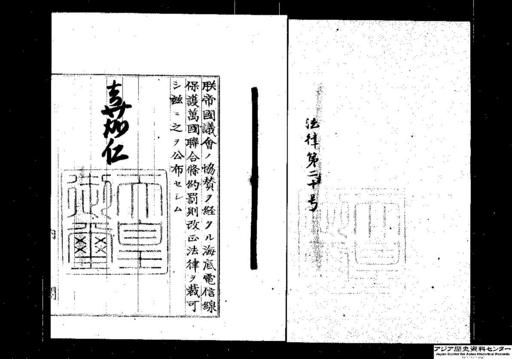 法律第二十号
朕帝國議會ノ協賛ヲ経タル海底電信線
保護萬國聯合條約罰則改正法律ヲ裁可
シ茲ニ之ヲ公布セシム
嘉仁
天皇
御璽
内閣
アジア歴史資料センター
Japan Center for Asian Historical Records